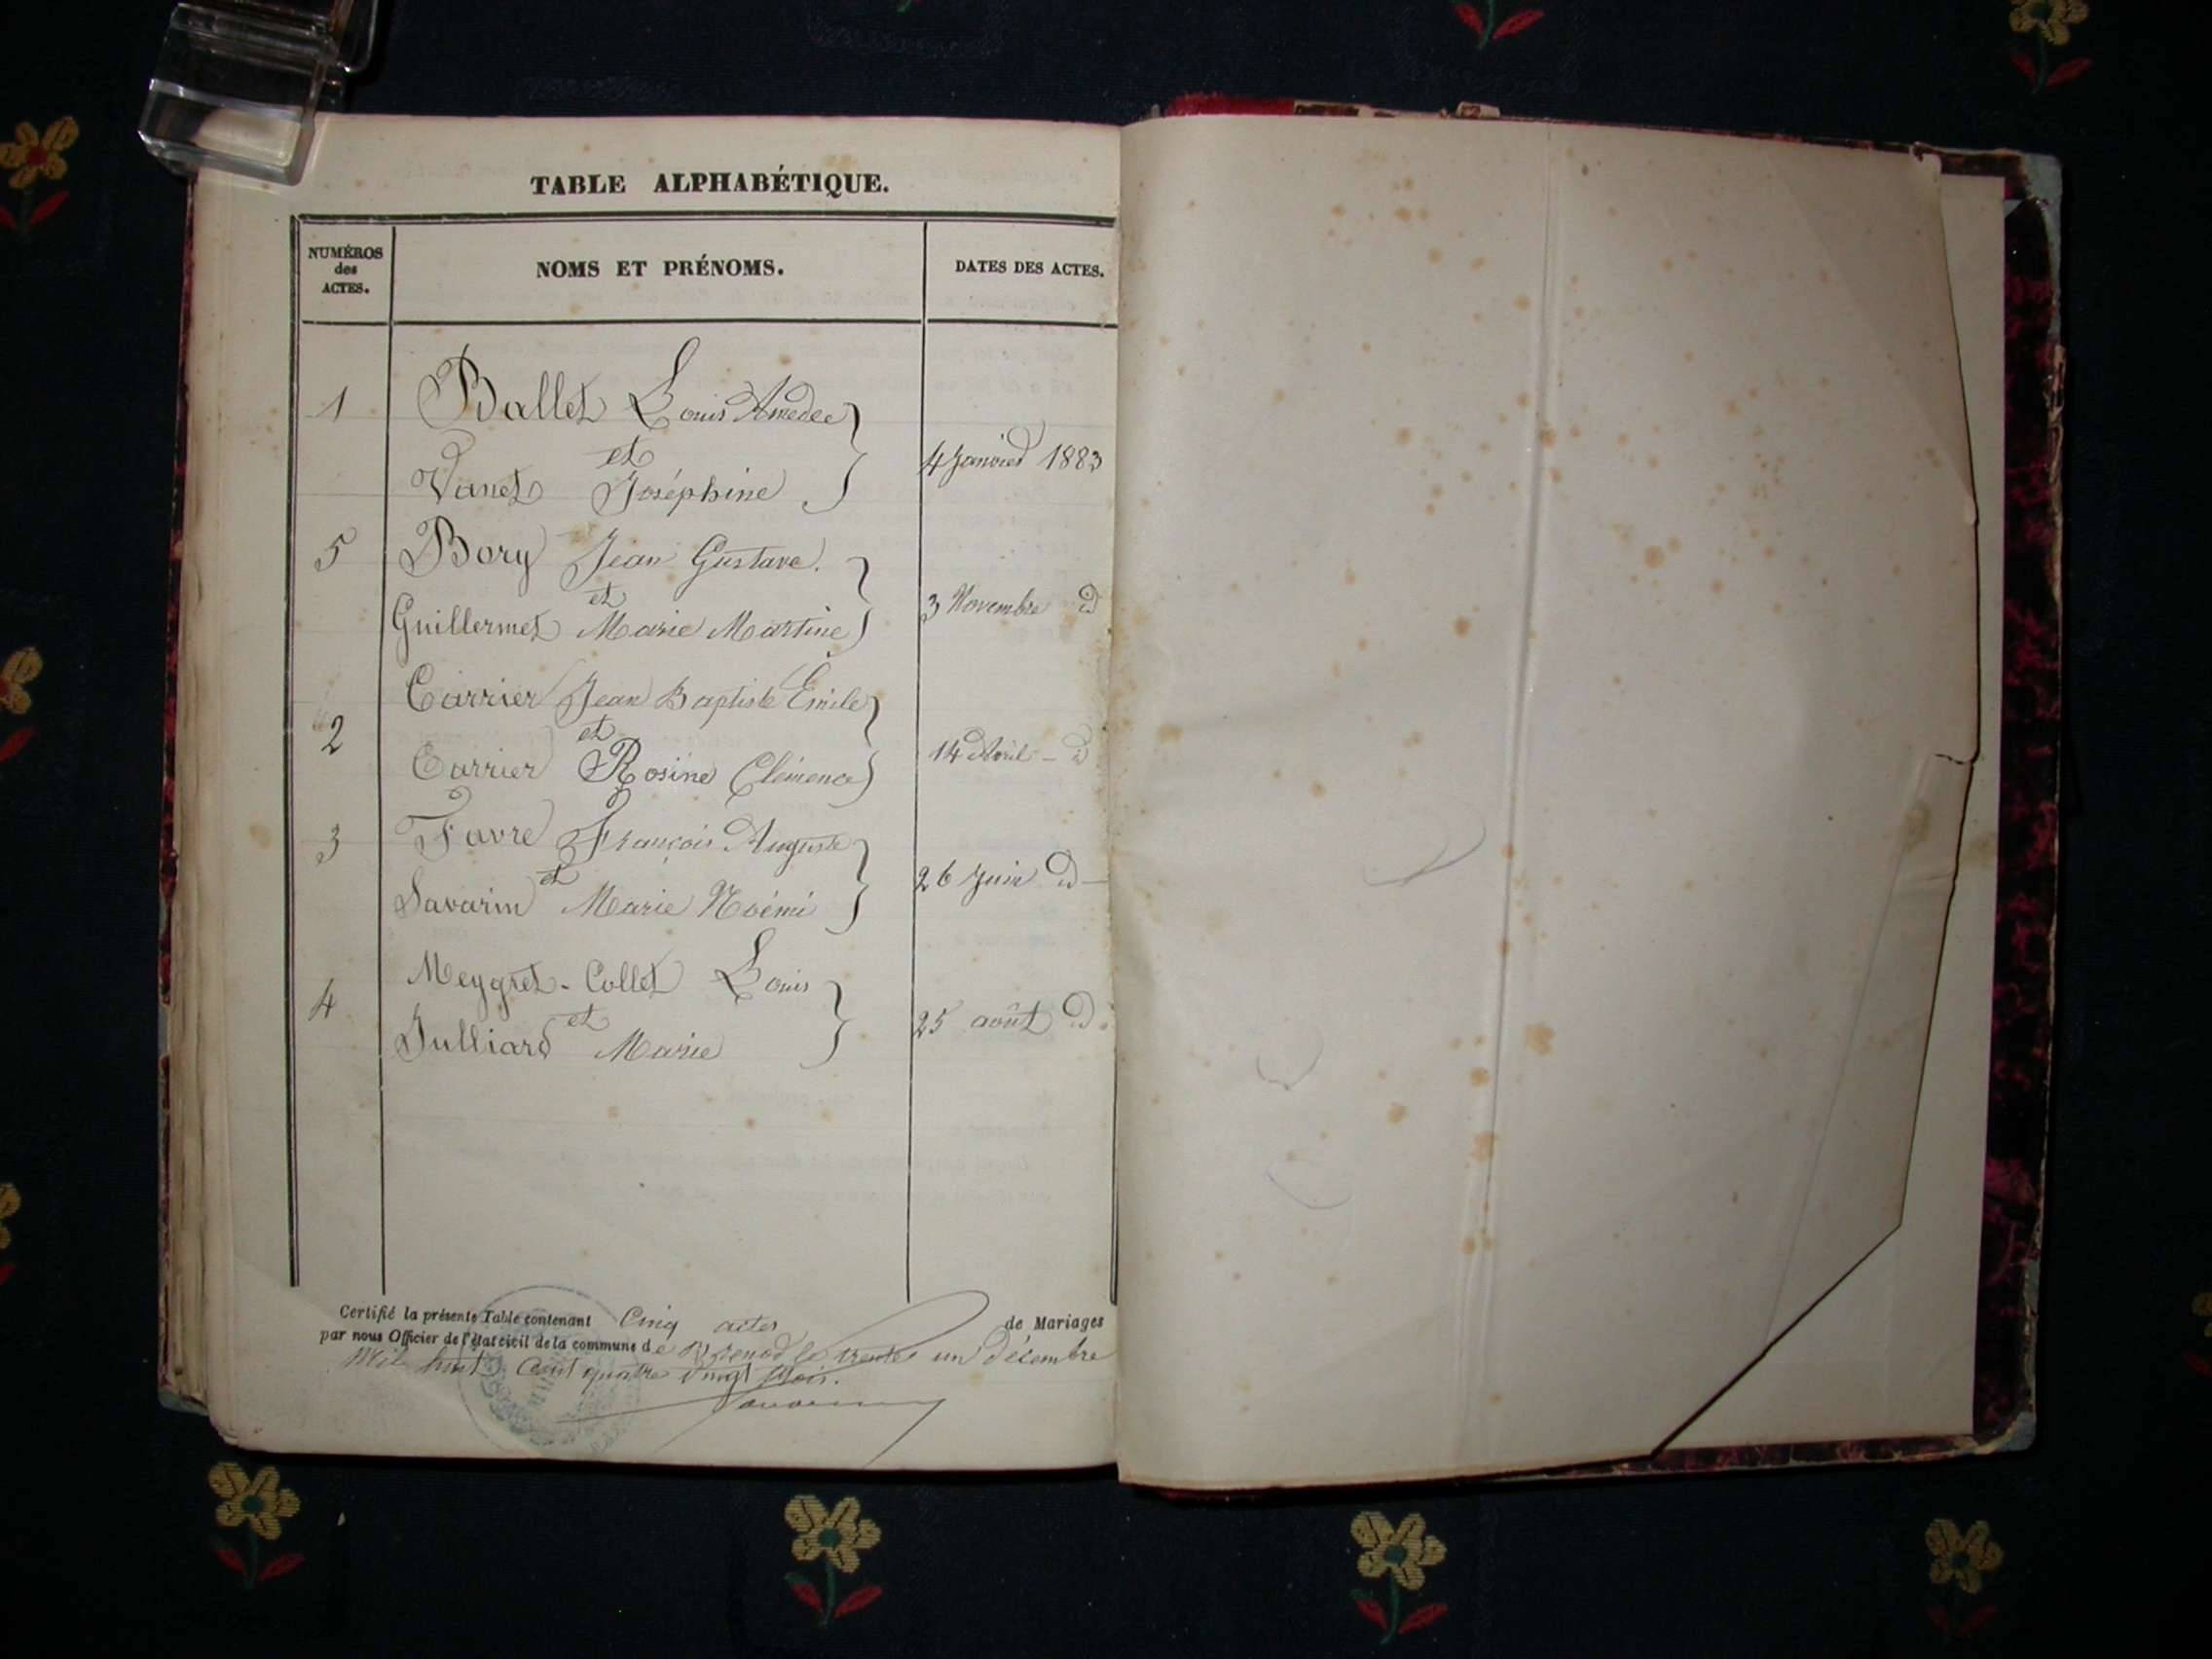 TABLE ALPHABÉTIQUE.
NUMÉROS des ACTES.
NOMS ET PRÉNOMS.
DATES DES ACTES.
1 Ballet Louis Amedee
et
4 Janvier 1883
Vanet Joséphine
5 Bory Jean Gustave.
et
3 Novembre d
Guillermet Marie Martine
Carrier Jean Baptiste Emile
2 et
14 Avril - d
Carrier Rosine Clémence
3 Favre François Auguste
et
26 Juin d -
Savarin Marie Noémi
Meygret-Collet Louis
4 et
25 août d
Julliard Marie
Certifié la présente Table contenant Cinq actes de Mariages
par nous Officier de l'état civil de la commune de Brenod le trente un décembre
Mil huit cent quatre vingt trois.